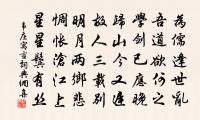 為儒逢世亂
吾道欲何之
學劍已應晚
歸山今又遲
故人三載別
明月兩鄉悲
惆悵滄江上
星星鬢有絲
韋庄寓言詞典網集